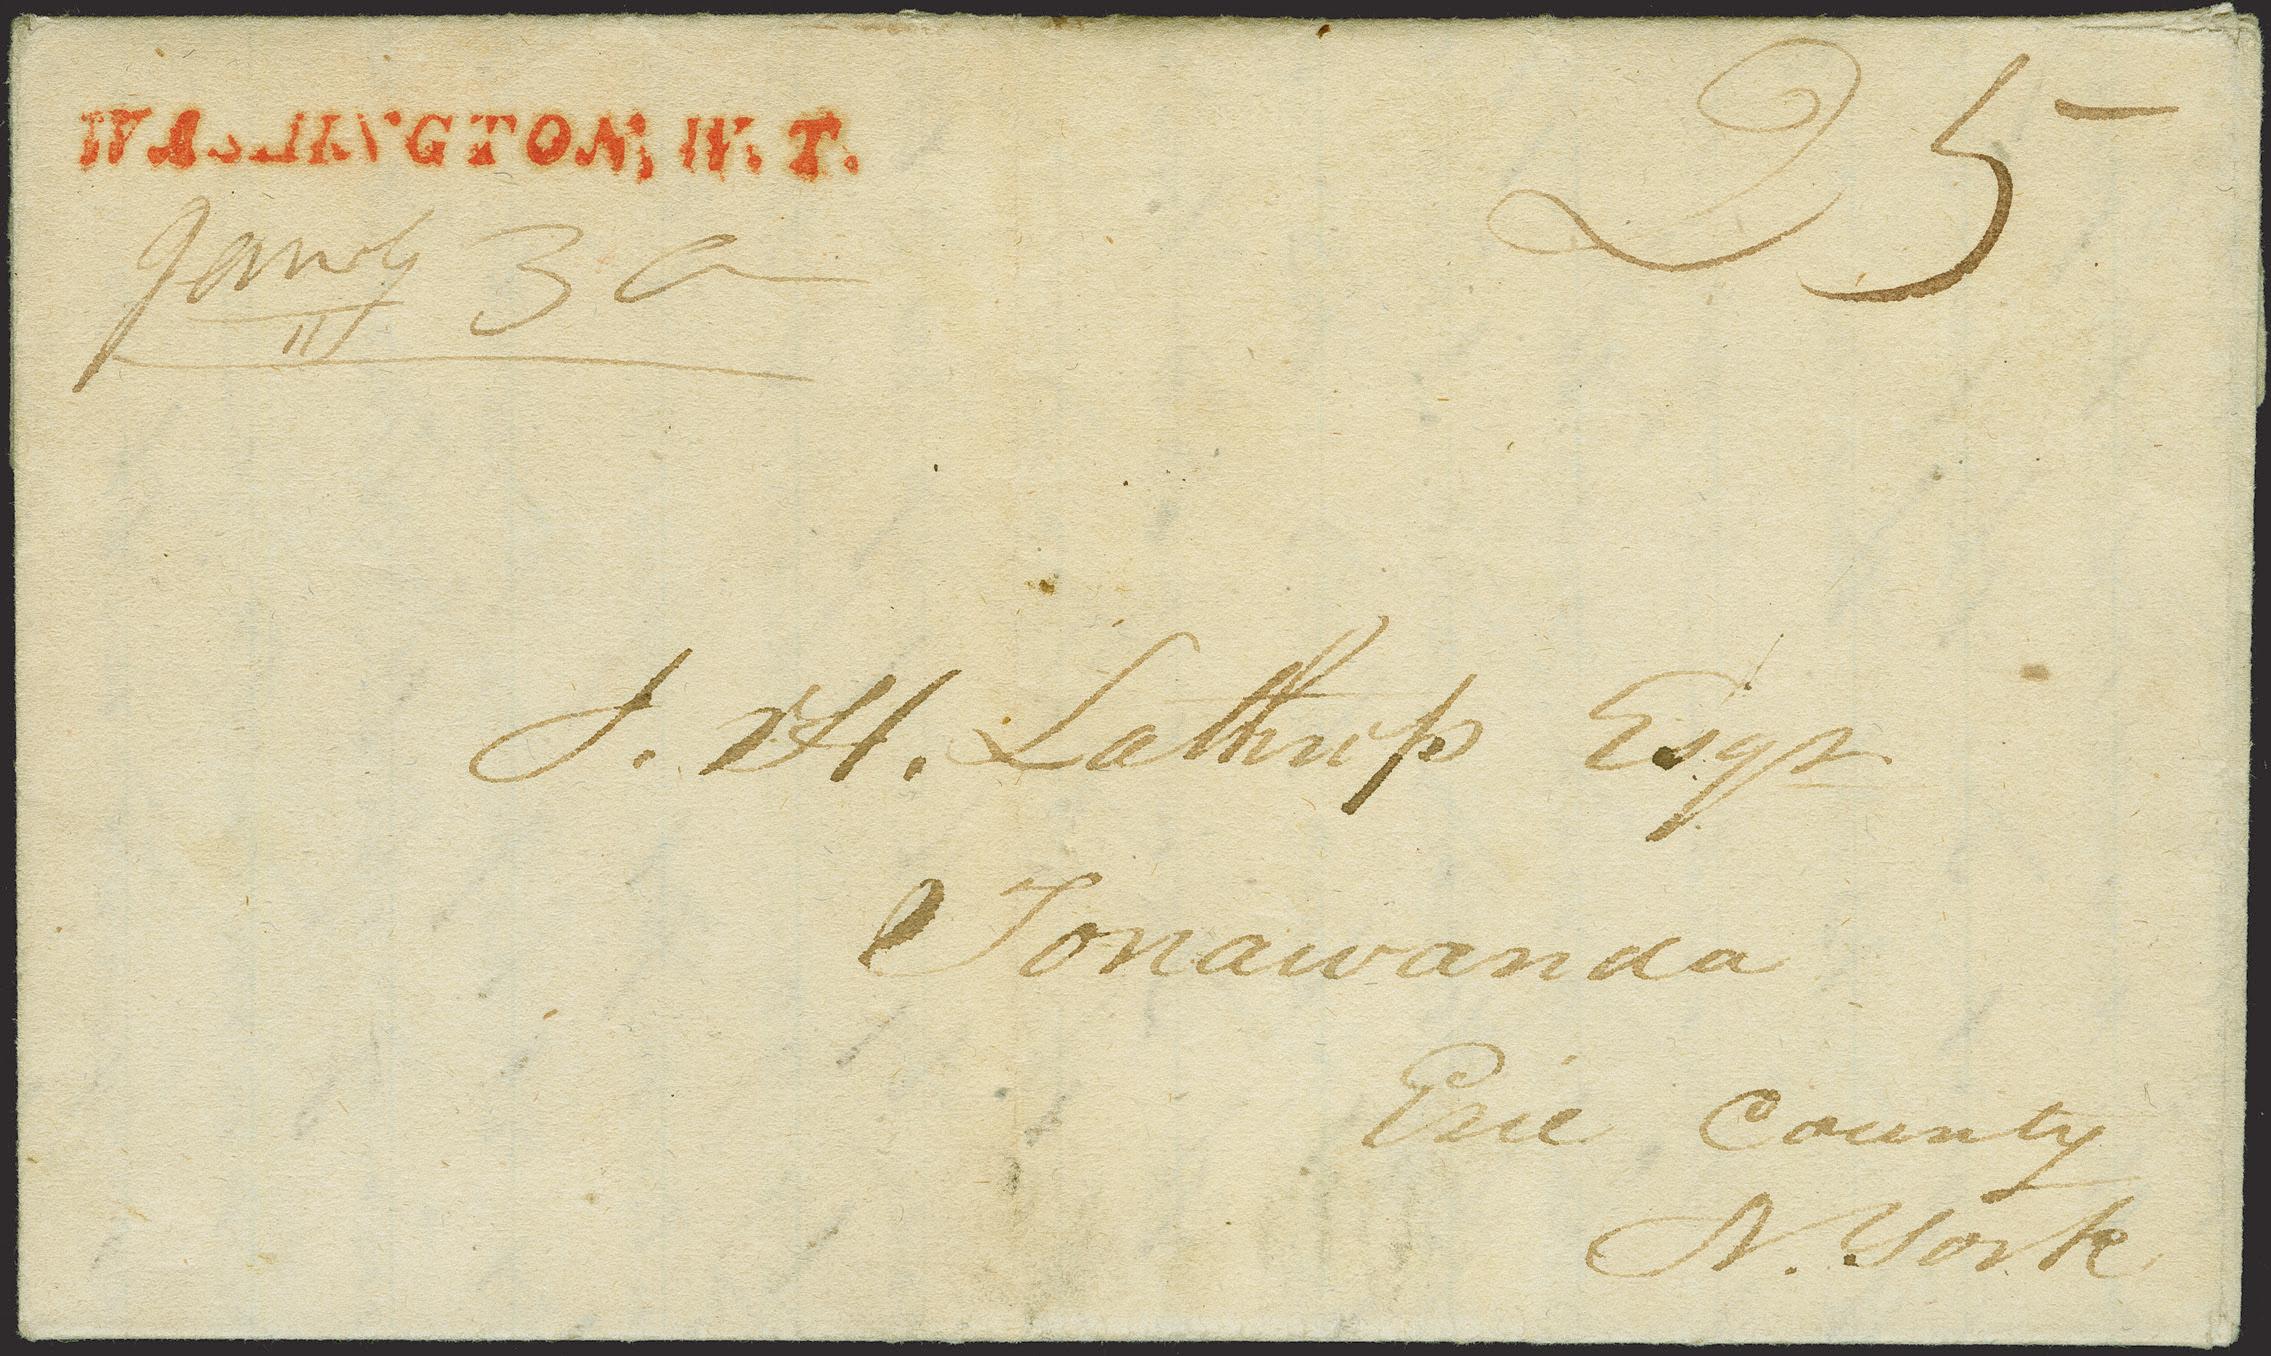 WASHINGTON, W. T.
25
Jany 30
J. H. Lathrop Esqr
Tonawanda
Erie County
N. York